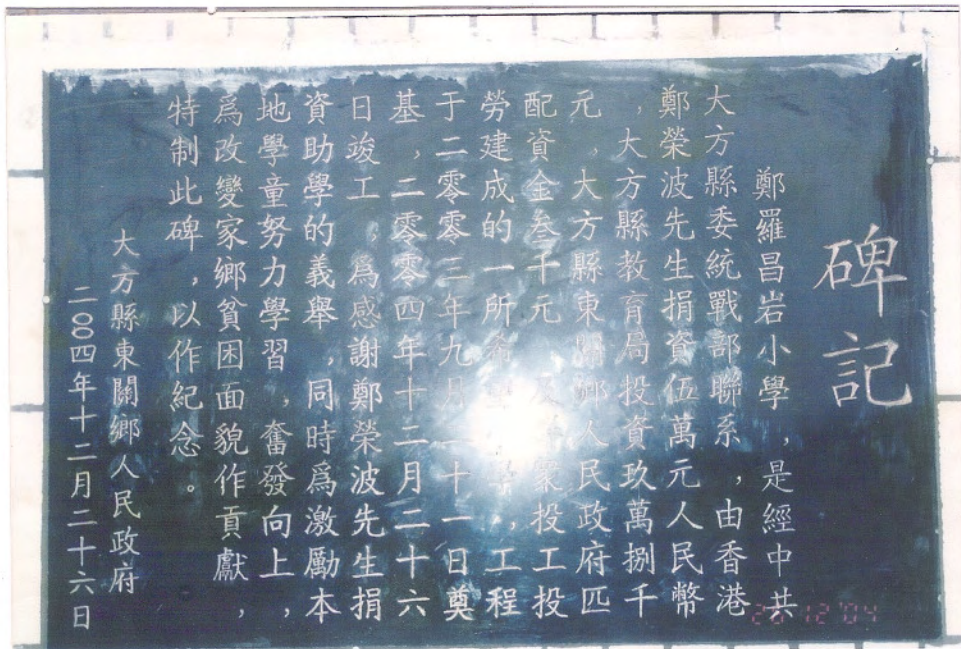 碑記
鄭羅昌岩小學，是經中共
大方縣委統戰部聯系，由香港
鄭榮波先生捐資伍萬元人民幣
，大方縣教育局投資玖萬捌千
元，大方縣東關鄉人民政府匹
配資金叁千元及衆投工投
勞建成的一所希學，工程
于二零零三年九月二十一日奠
基，二零零四年十二月二十六
日竣工，爲感謝鄭榮波先生捐
資助學的義舉，同時爲激勵本
地學童努力學習，奮發向上，
爲改變家鄉貧困面貌作貢獻，
特制此碑，以作紀念。
大方縣東關鄉人民政府
二〇〇四年十二月二十六日
12 '04